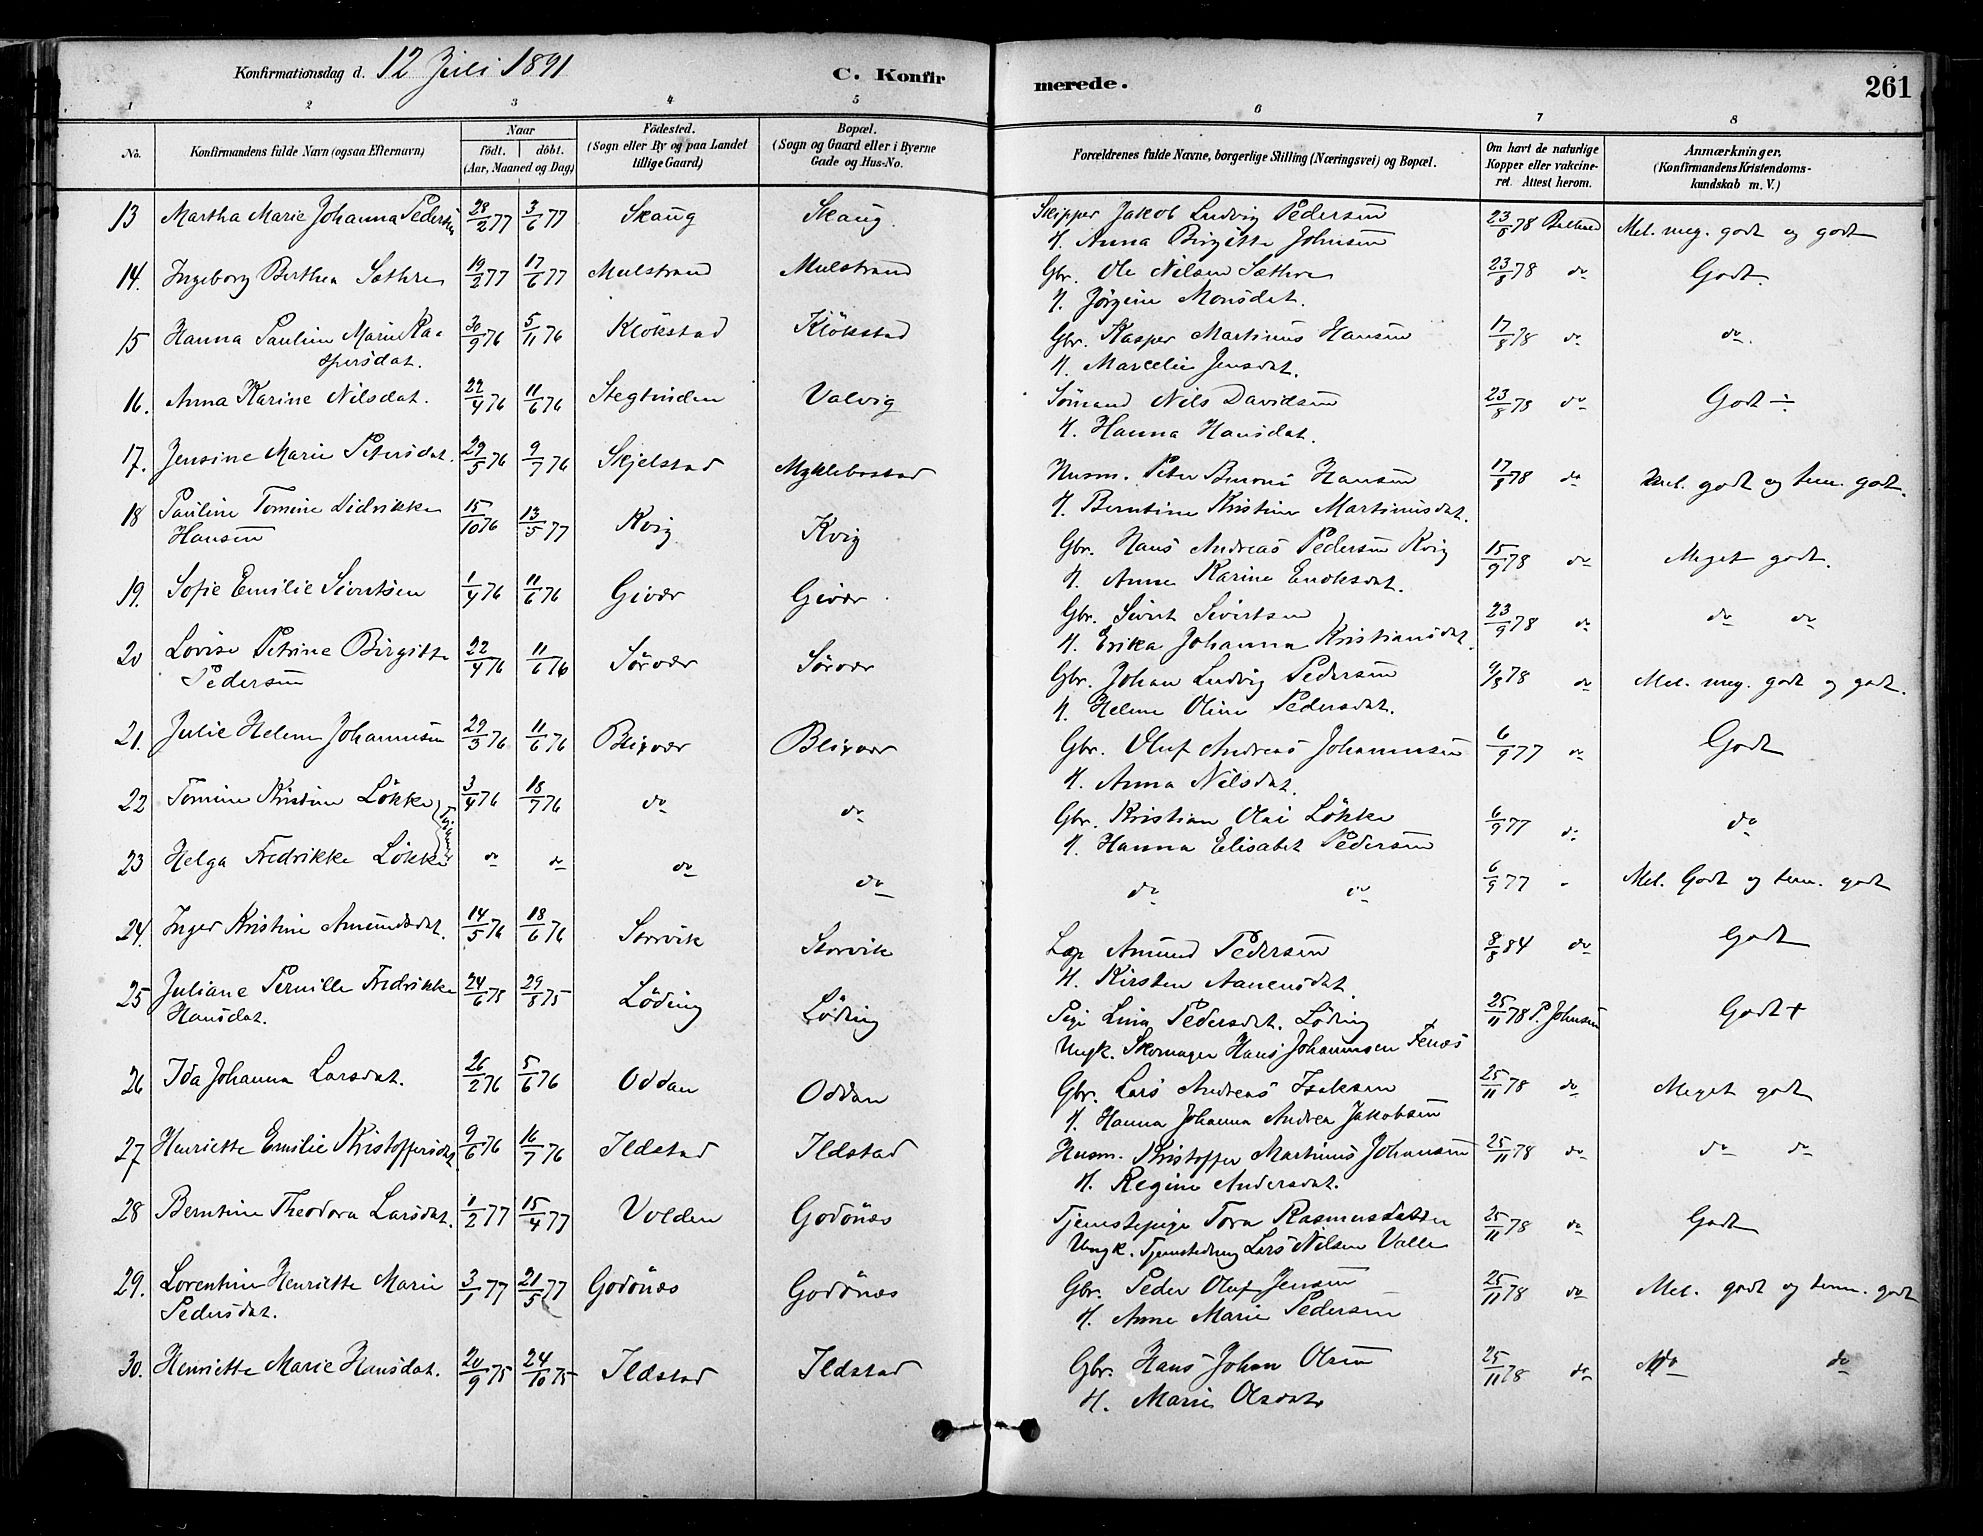 Konfirmationsdag d. 12 Juli 1891
C. Konfir
merede.
261
1 2 3 4 5 6 7 8
No.
Konfirmandens fulde Navn (ogsaa Efternavn)
Naar
födt. döbt.
(Aar, Maaned og Dag)
Födested.
(Sogn eller By og paa Landet
tillige Gaard)
Bopæl.
(Sogn og Gaard eller i Byerne
Gade og Hus-No.
Forældrenes fulde Navne, borgerlige Stilling (Næringsvei) og Bopæl.
Om havt de naturlige
Kopper eller vakcine-
ret. Attest herom.
Anmærkninger.
(Konfirmandens Kristendoms-
kundskab m. V.)
13 Martha Marie Johanna Pedersen 28/2 77 3/6 77 Skaug Skaug. Skipper Jakob Ludvig Pedersen 23/8 78 Mel. meg. godt og godt
H. Anna Birgitte Johnsen
14. Ingeborg Berthea Sæthre 19/2 77 17/6 77 Mulstrand Mulstrand Gbr. Ole Nilsen Sæthre 23/8 78 do Godt.
H. Jörgine Monsdat.
15 Hanna Pauline Marie Ka- 30/9 76 5/11 76 Klökstad Klökstad Gbr. Kasper Martinus Hansen 17/8 78 do do.
spersdat. H. Marcelie Jensdat.
16. Anna Karine Nilsdat. 22/4 76 11/6 76 Stegtinden Valvig Sömand Nils Davidsen 23/8 78 do Godt ÷
H. Hanna Hansdat.
17. Jensine Marie Petersdat. 29/5 76 9/7 76 Skjelstad Myklebostad Husm. Peter Benoni Hansen 17/8 78 do Mel. godt og tem. godt.
H. Berntine Kristine Martinusdat.
18 Pauline Tomine Didrikke 15/10 76 13/5 77 Kvig Kvig Gbr. Hans Andreas Pedersen Kvig 15/9 78 do Meget godt.
Hansen H. Anne Karine Enoksdat.
19. Sofie Emilie Sivertsen 1/4 76 11/6 76 Givær Givær. Gbr. Sivert Sivertsen 23/9 78 do do do
H. Erika Johanna Kristiansdat.
20 Lovise Petrine Birgitte 22/4 76 11/6 76 Sörvær Sörvær Gbr. Johan Ludvig Pedersen 4/8 78 do Mel. meg. godt og godt.
Pedersen H. Helene Oline Pedersdat.
21. Julie Helene Johannesen 29/3 76 11/6 76 Blixvær Blixvær Gbr. Oluf Andreas Johannesen 6/9 77 do Godt
H. Anna Nilsdat.
22 Tomine Kristine Lökke 3/4 76 18/7 76 do do Gbr. Kristian Olai Lökke 6/9 77 do do
H. Hanna Elisabet Pedersen
23 Helga Fredrikke Lökke do do do do do do 6/9 77 Mel. Godt og tem. godt
24. Inger Kristine Amundsdat. 14/5 76 18/6 76 Storvik Storvik Lap Amund Pedersen 8/8 84 do Godt
H. Kirsten Aanensdat.
25 Juliane Pernille Fredrikke 24/6 75 29/8 75 Löding Löding Pige Lina Pedersdat. Löding 25/11 78 P. Johnsen Godt +
Hansdat. Ungk. Skomager Hans Johannsen Fenæs
26 Ida Johanna Larsdat. 26/2 76 5/6 76 Oddan Oddan Gbr. Lars Andreas Isaksen 25/11 78 do Meget godt
H. Hanna Johanna Andrea Jakobsen
27 Henriette Emilie Kristoffersdat. 9/6 76 16/7 76 Ildstad Ildstad Husm. Kristoffer Martinus Johansen 25/11 78 do do do
H. Regine Andersdat.
28 Berntine Theodora Larsdat. 1/2 77 15/4 77 Volden Godönæs Tjenestepige Tora Rasmusdatter 25/11 78 do Godt
Ungk. Tjenestedreng Lars Nilsen Valle
29. Lorentine Henriette Marie 3/1 77 21/5 77 Godönæs Godönæs Gbr. Peder Oluf Jensen 25/11 78 do Mel. godt og tem. godt
Pedersdat. H. Anne Marie Pedersen
30. Henriette Marie Hansdat. 20/9 75 24/10 75 Ildstad Ildstad Gbr. Hans Johan Olsen 25/11 78 do do do
H. Marie Olsdat.